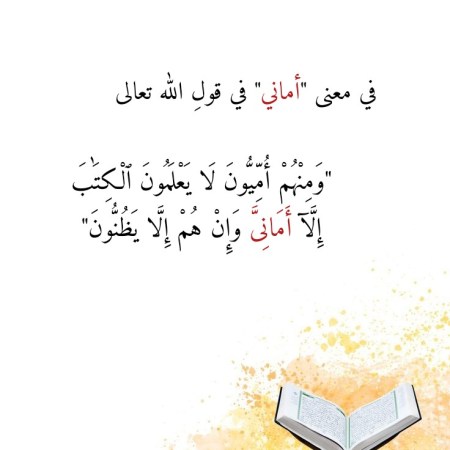 في معنى "أماني" في قولِ الله تعالى
"وَمِنْهُمْ أُمِّيُّونَ لَا يَعْلَمُونَ ٱلْكِتَٰبَ
إِلَّآ أَمَانِىَّ وَإِنْ هُمْ إِلَّا يَظُنُّونَ"